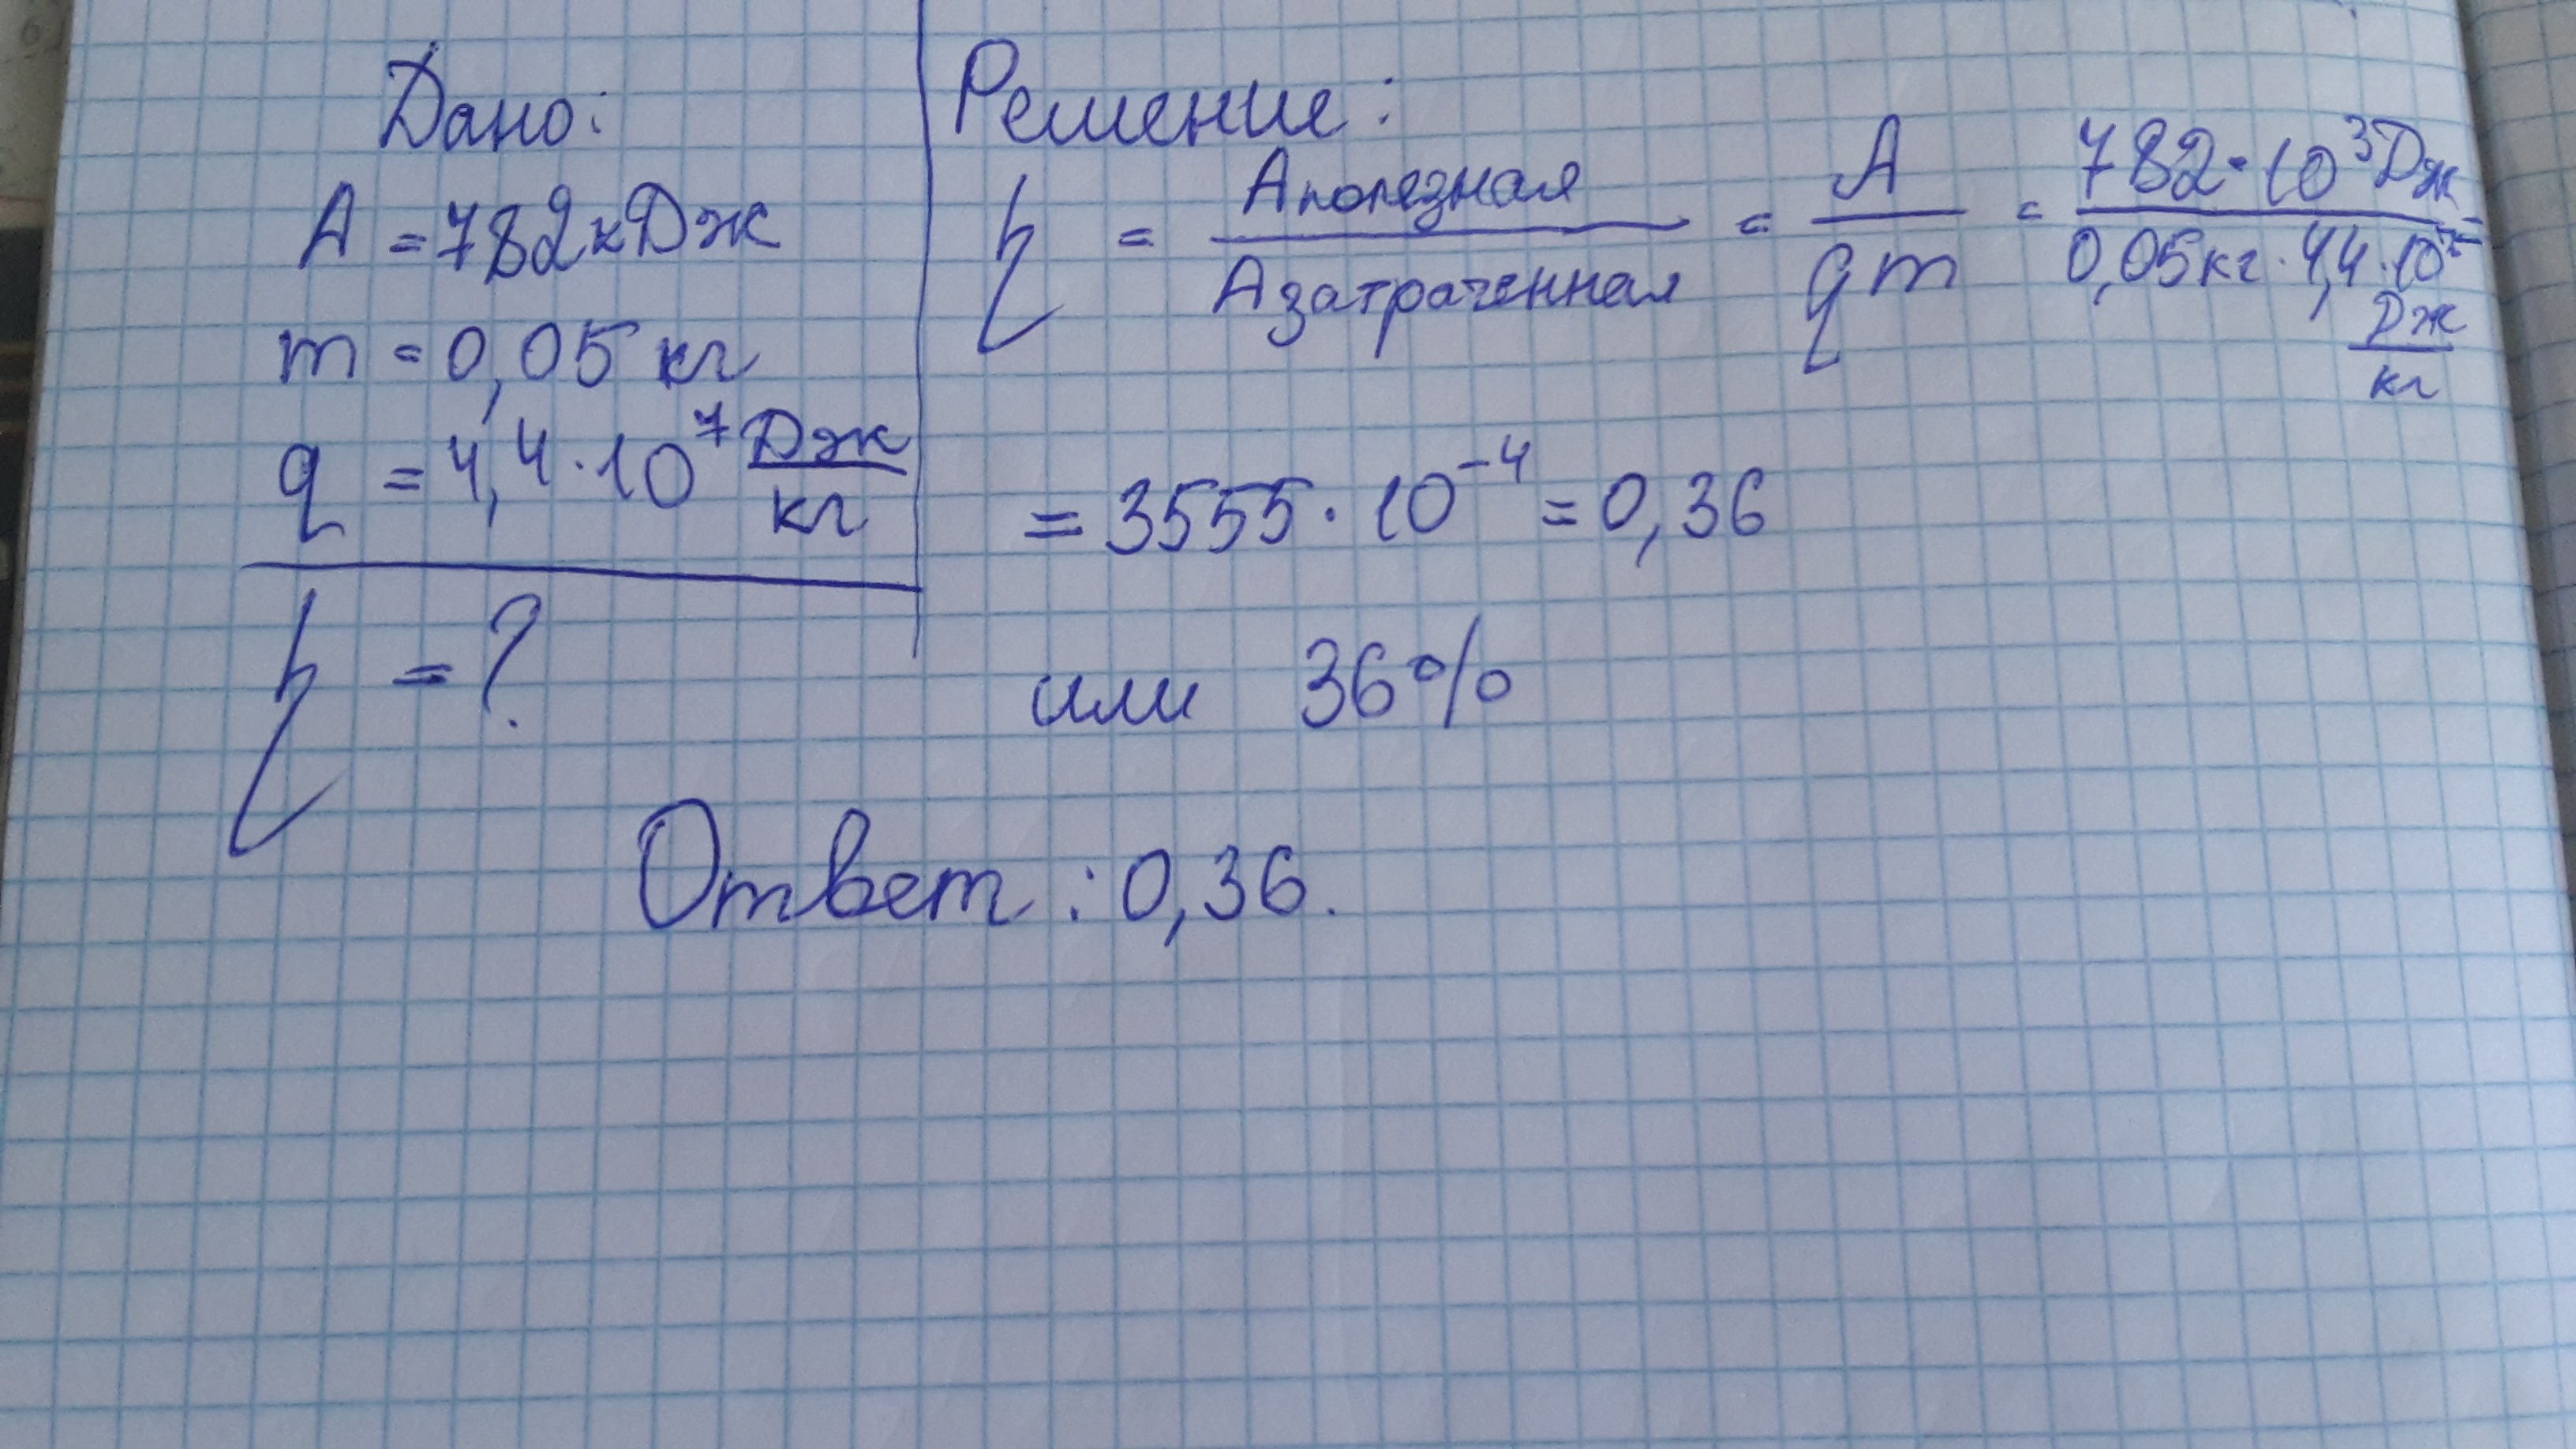 Дано:
A = 782кДж
m = 0,05 кг
q = 4,4·10⁷ Дж/кг
η = ?
Решение:
η = Aполезная/Aзатраченная = A/qm = 782·10³Дж/0,05кг·4,4·10⁷ Дж/кг =
= 3555·10⁻⁴ = 0,36
или 36%
Ответ: 0,36.